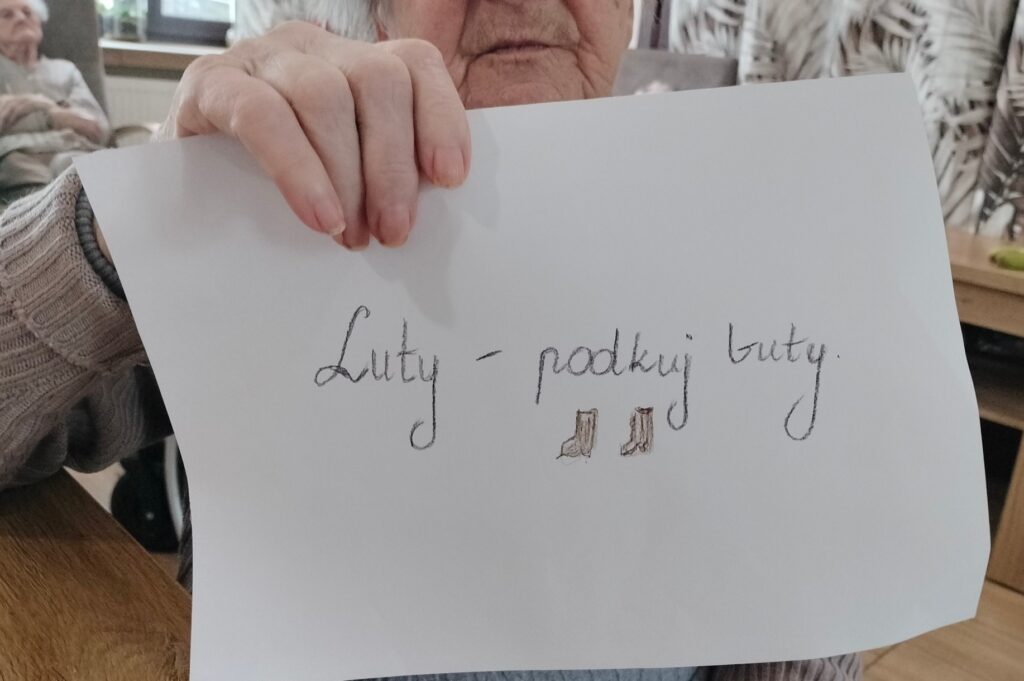 Luty - podkuj buty.